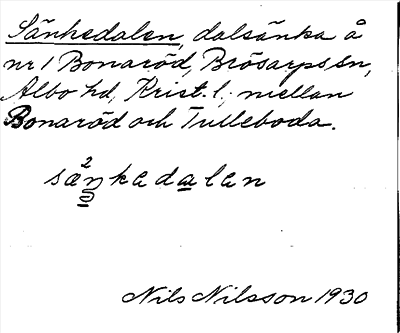 Sänkedalen, dalsänka å
nr 1 Bonaröd, Brösarps sn,
Albo hd, Krist. l., mellan
Bonaröd och Tulleboda.
sæ²ŋkadalan
Nils Nilsson 1930